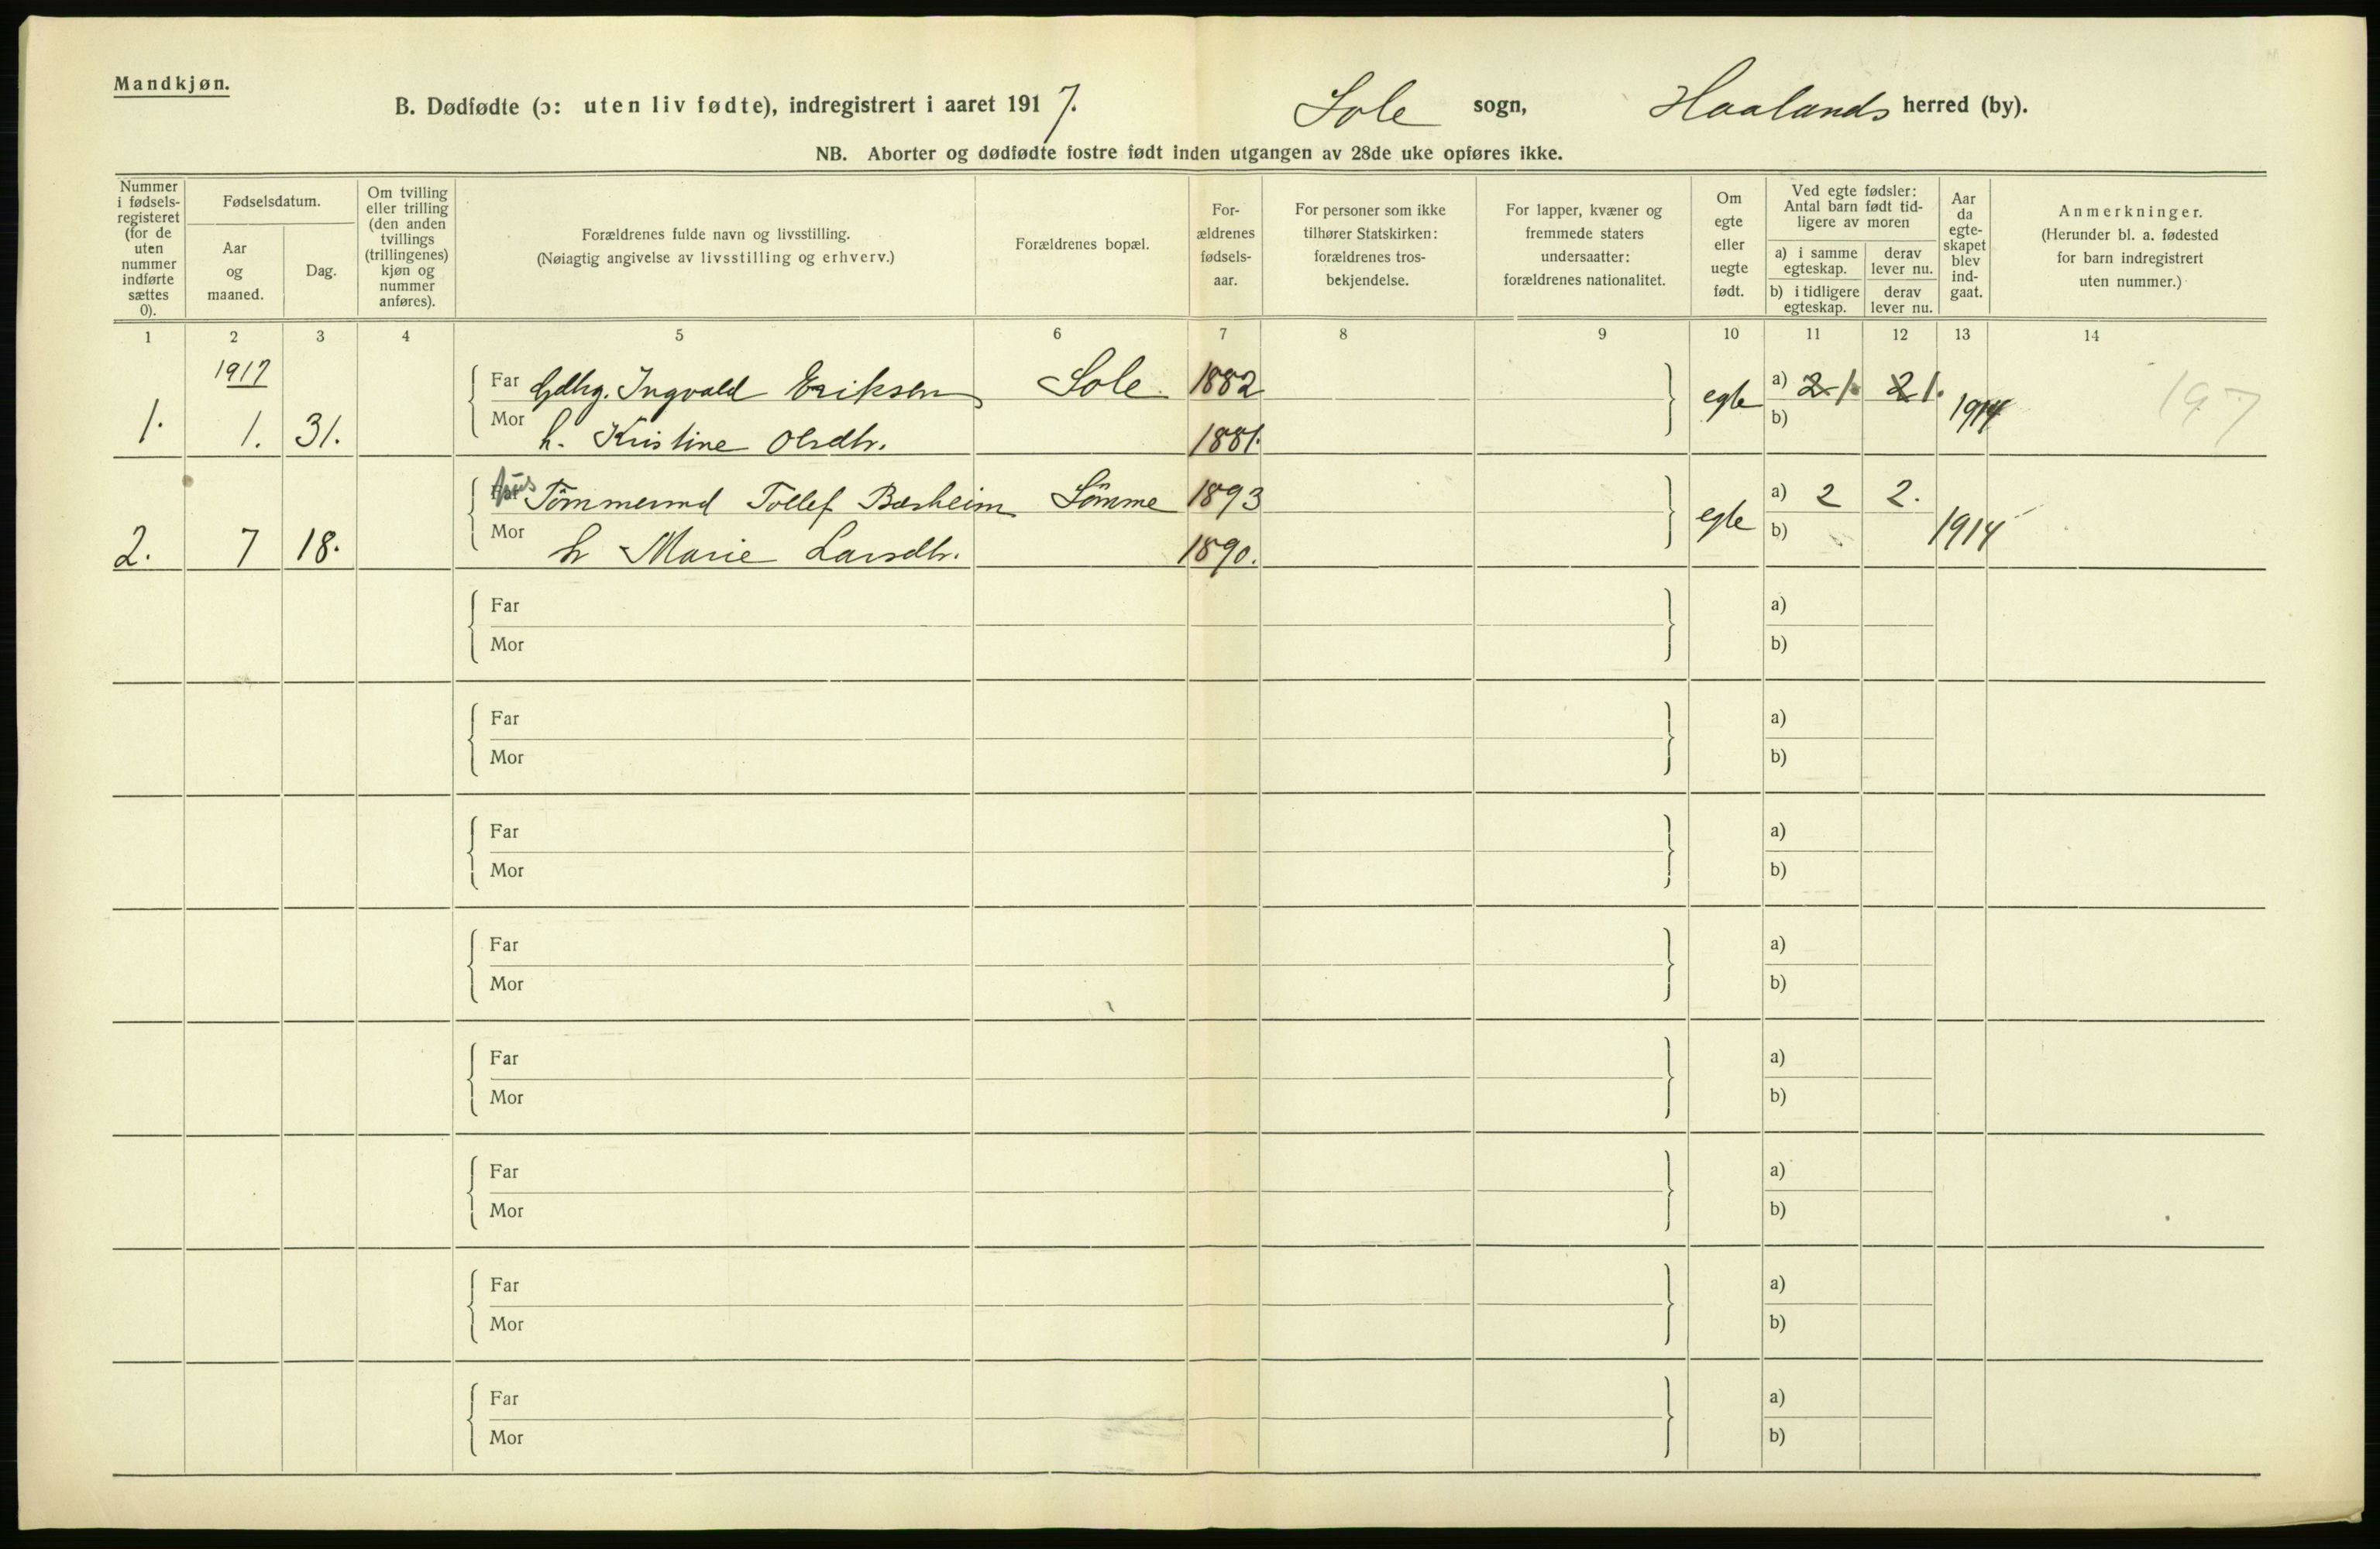 Mandkjøn.
B. Dødfødte (ɔ: uten liv fødte), indregistrert i aaret 1917. Sole sogn, Haalands herred (by).
NB. Aborter og dødfødte fostre født inden utgangen av 28de uke opføres ikke.
Nummer
i fødsels-
registeret
(for de
uten
nummer
indførte
sættes
0).
Fødselsdatum.
Aar
og
maaned.
Dag.
Om tvilling
eller trilling
(den anden
tvillings
(trillingenes)
kjøn og
nummer
anføres).
Forældrenes fulde navn og livsstilling.
(Nøiagtig angivelse av livsstilling og erhverv.)
Forældrenes bopæl.
For-
ældrenes
fødsels-
aar.
For personer som ikke
tilhører Statskirken:
forældrenes tros-
bekjendelse.
For lapper, kvæner og
fremmede staters
undersaatter:
forældrenes nationalitet.
Om
egte
eller
uegte
født.
Ved egte fødsler:
Antal barn født tid-
ligere av moren
a) i samme
egteskap.
derav
lever nu.
b) i tidligere
egteskap.
derav
lever nu.
Aar
da
egte-
skapet
blev
ind-
gaat.
Anmerkninger.
(Herunder bl. a. fødested
for barn indregistrert
uten nummer.)
1 2 3 4 5 6 7 8 9 10 11 12 13 14
1917
Far Gdbg. Ingvald Eriksen Sole. 1882 egte a) 2 1. 2 1. 1914 197
1. 1. 31. Mor h. Kristine Olsdtr. 1881. b)
Tömmermd Tollef Bærheim Sömme 1893 egte a) 2 2. 1914
2. 7 18. Mor h Marie Larsdtr. 1890. b)
Far a)
Mor b)
Far a)
Mor b)
Far a)
Mor b)
Far a)
Mor b)
Far a)
Mor b)
Far a)
Mor b)
Far a)
Mor b)
Far a)
Mor b)